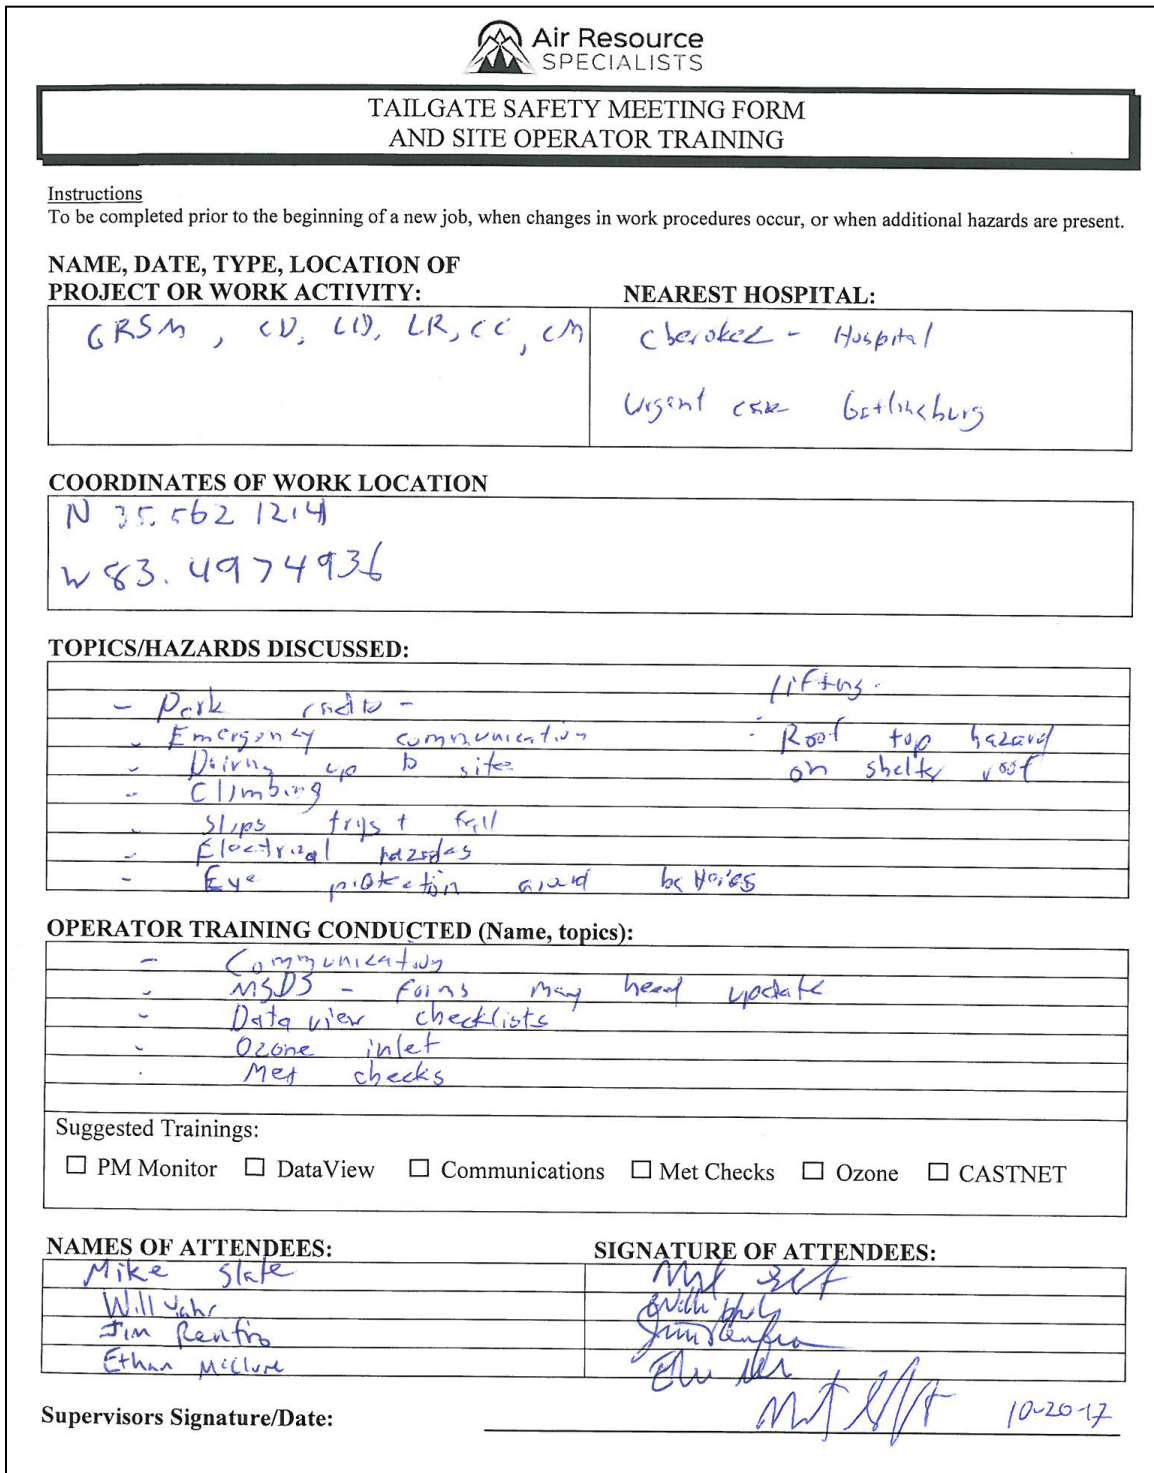 Air Resource
SPECIALISTS
TAILGATE SAFETY MEETING FORM
AND SITE OPERATOR TRAINING
Instructions
To be completed prior to the beginning of a new job, when changes in work procedures occur, or when additional hazards are present.
NAME, DATE, TYPE, LOCATION OF
PROJECT OR WORK ACTIVITY:
GRSM, CD, LR, CC, CM
NEAREST HOSPITAL:
Cherokee - Hospital
Urgent care Gatlinburg
COORDINATES OF WORK LOCATION
N 35.562 1214
W 83.4974936
TOPICS/HAZARDS DISCUSSED:
- Park radio -
- Emergency communication
- Driving up to site
- Climbing
- Slips trips + fall
- Electrical hazards
- Eye protection around batteries
lifting.
- Roof top hazard
on shelter roof
OPERATOR TRAINING CONDUCTED (Name, topics):
- Communication
- MSDS - forms may need update
- Data view checklists
- Ozone inlet
- Met checks
Suggested Trainings:
☐ PM Monitor ☐ DataView ☐ Communications ☐ Met Checks ☐ Ozone ☐ CASTNET
NAMES OF ATTENDEES:
Mike Slate
Will
Jim Renfro
Ethan McClure
SIGNATURE OF ATTENDEES:
Jim Renfro
Supervisors Signature/Date:
10-20-17